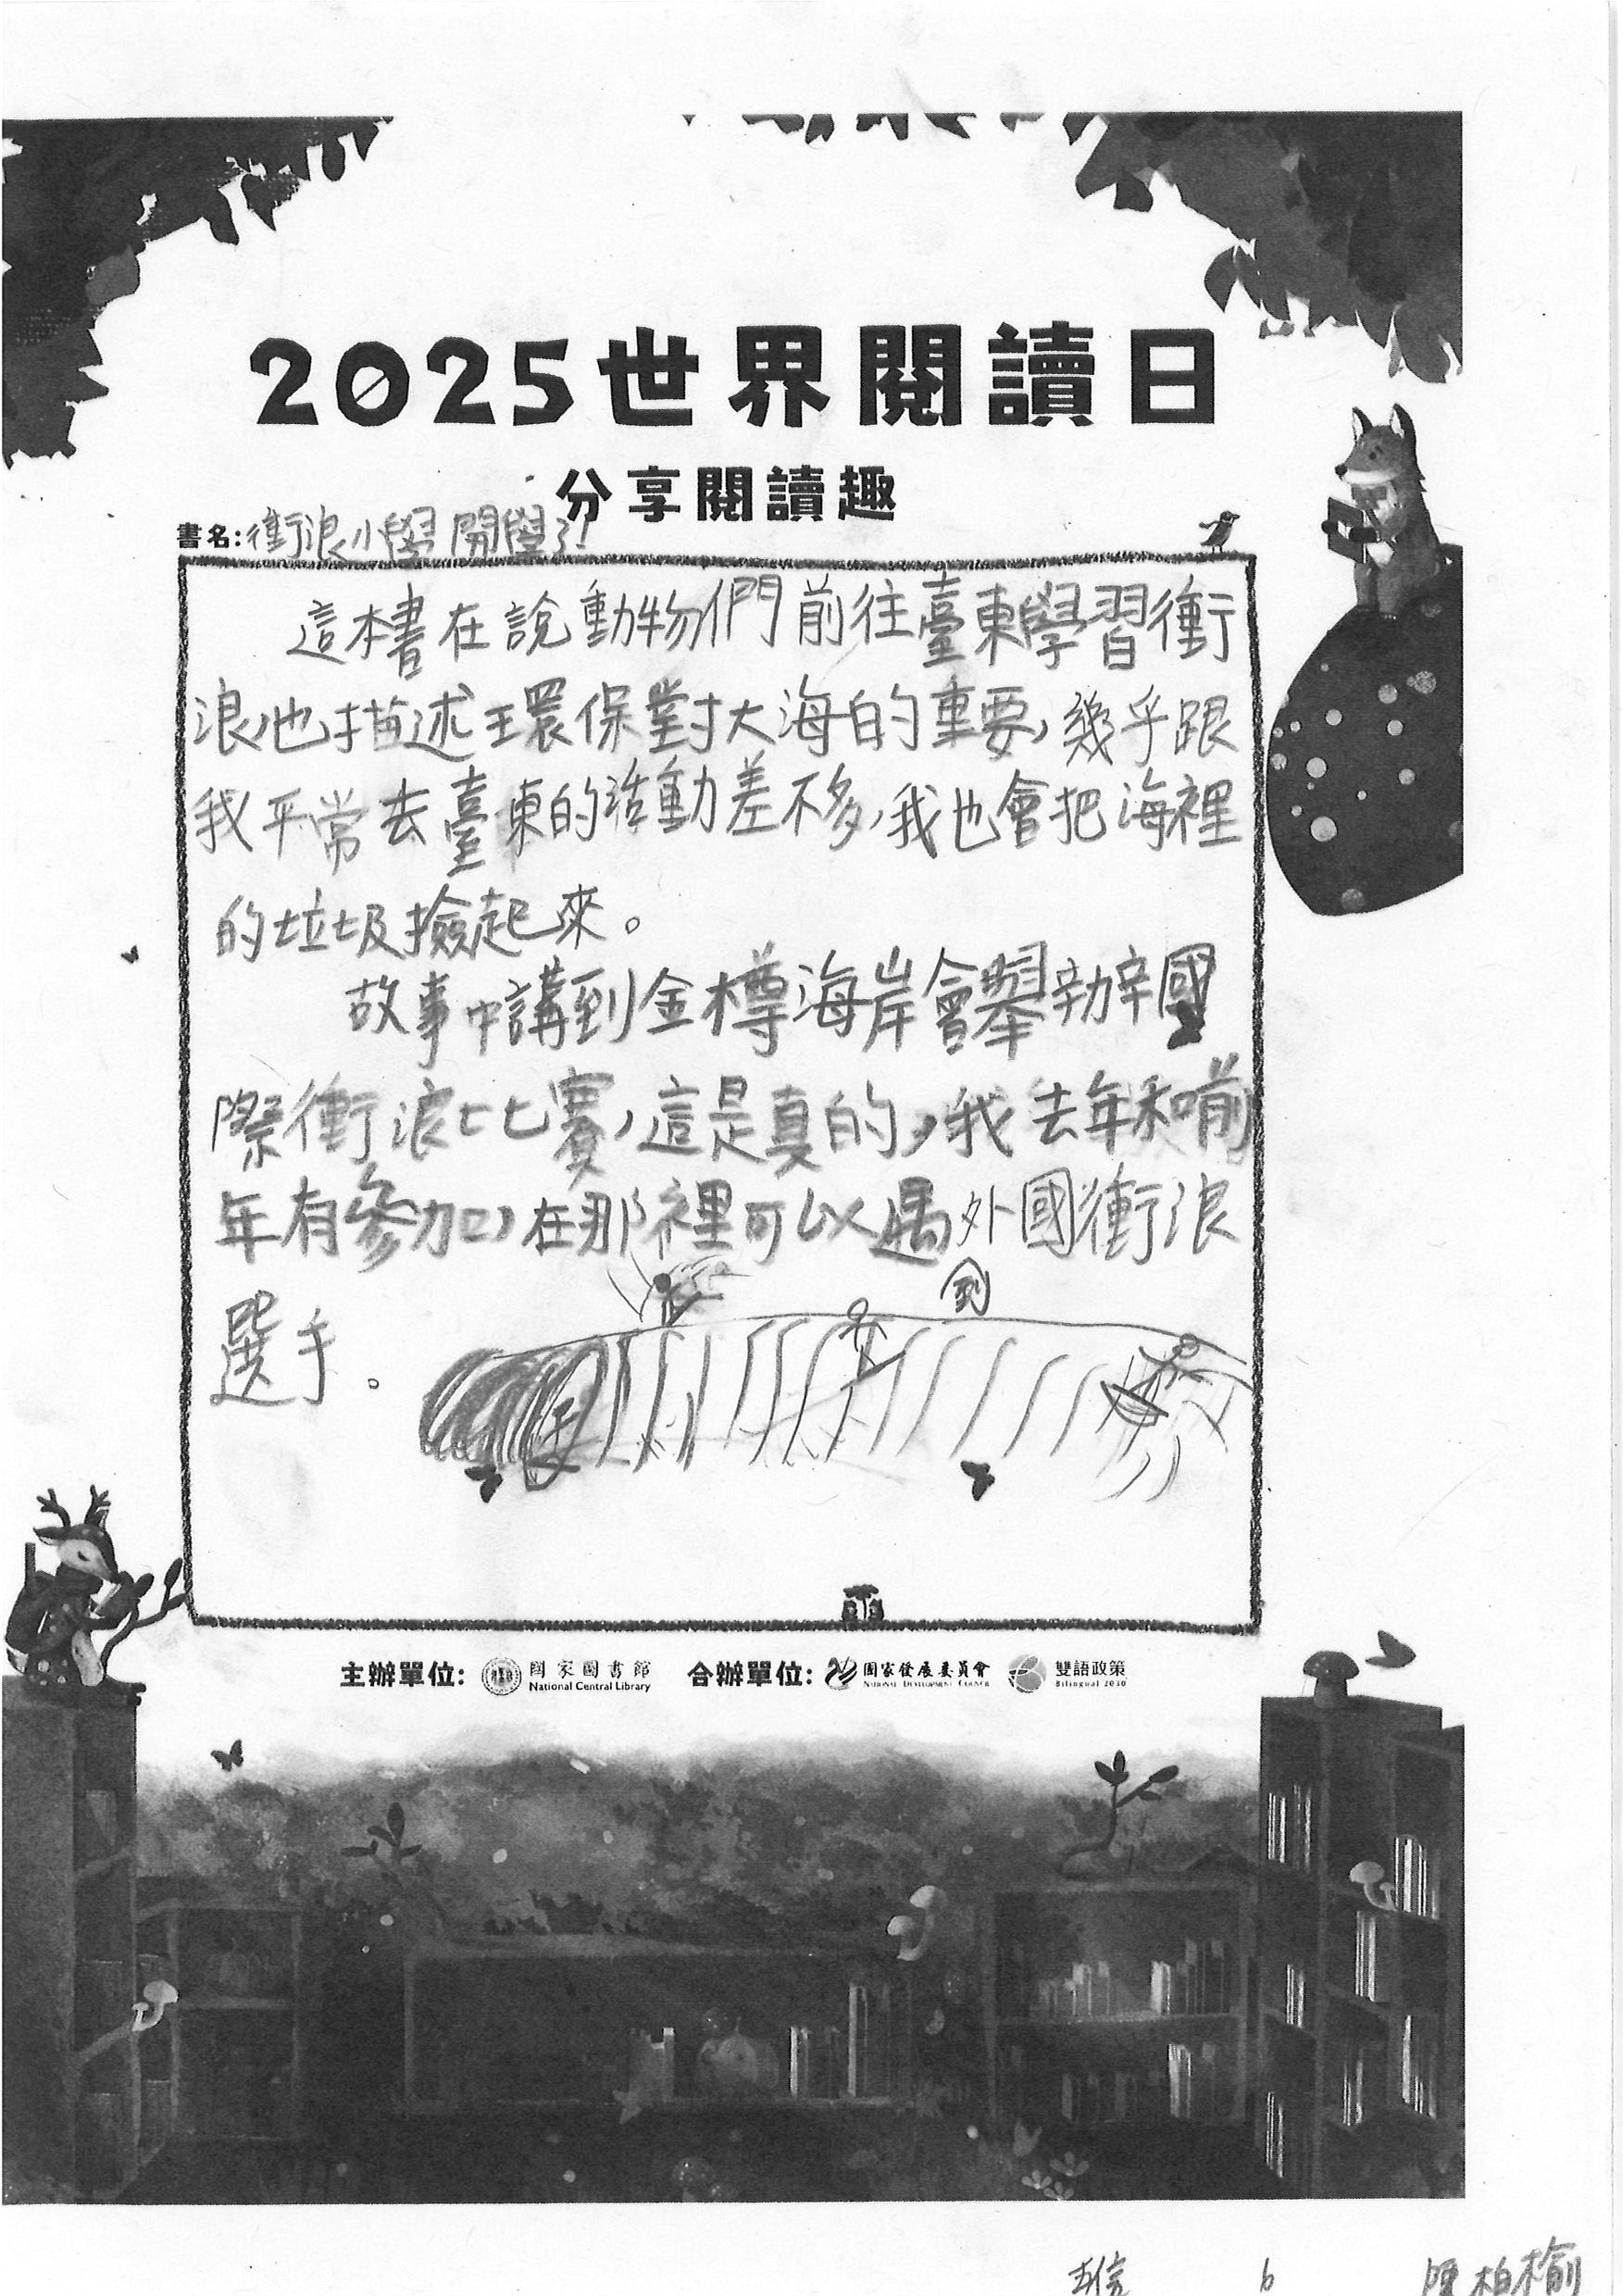 2025世界閱讀日
分享閱讀趣
書名:衝浪小學開學了!
這本書在說動物們前往臺東學習衝
浪,也描述環保對大海的重要,幾乎跟
我平常去臺東的活動差不多,我也會把海裡
的垃圾撿起來。
故事中講到金樽海岸會舉辦國
際衝浪比賽,這是真的,我去年和前
年有參加,在那裡可以遇外國衝浪
到
選手。
主辦單位: 國家圖書館 合辦單位: 國家發展委員會 雙語政策
National Central Library NATIONAL DEVELOPMENT COUNCIL Bilingual 2030
6 陳柏榆